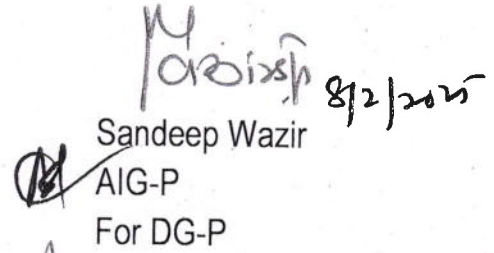 8/2/2025
Sandeep Wazir
AIG-P
For DG-P